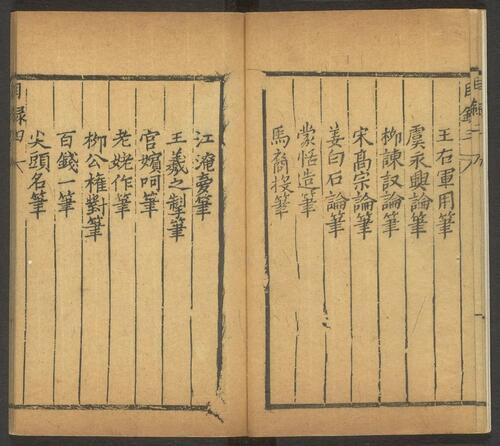 王右軍用筆
虞永興論筆
柳諫議論筆
宋髙宗論筆
姜白石論筆
蒙恬造筆
馬裔投筆
江淹夢筆
王羲之製筆
官嬪呵筆
老姥作筆
柳公權對筆
百錢一筆
尖頭名筆
目錄四